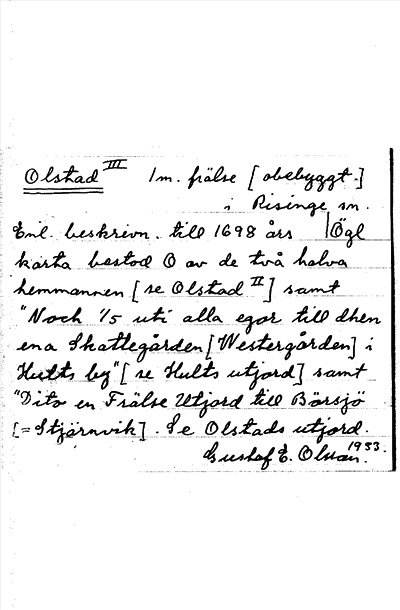 Olstad III 1 m. frälse [obebyggt.]
i Risinge sn.
Enl. beskrivn. till 1698 års Ögl
karta bestod O av de två halva
hemmannen [se Olstad II] samt
"Noch 1/5 uti alla egor till dhen
ena Skattegården [Westergården] i
Hults by" [se Hults utjord] samt
"Dito en Frälse Utjord till Börsjö
[= Stjärnvik]. Se Olstads utjord.
Gustaf E. Olsson. 1933.